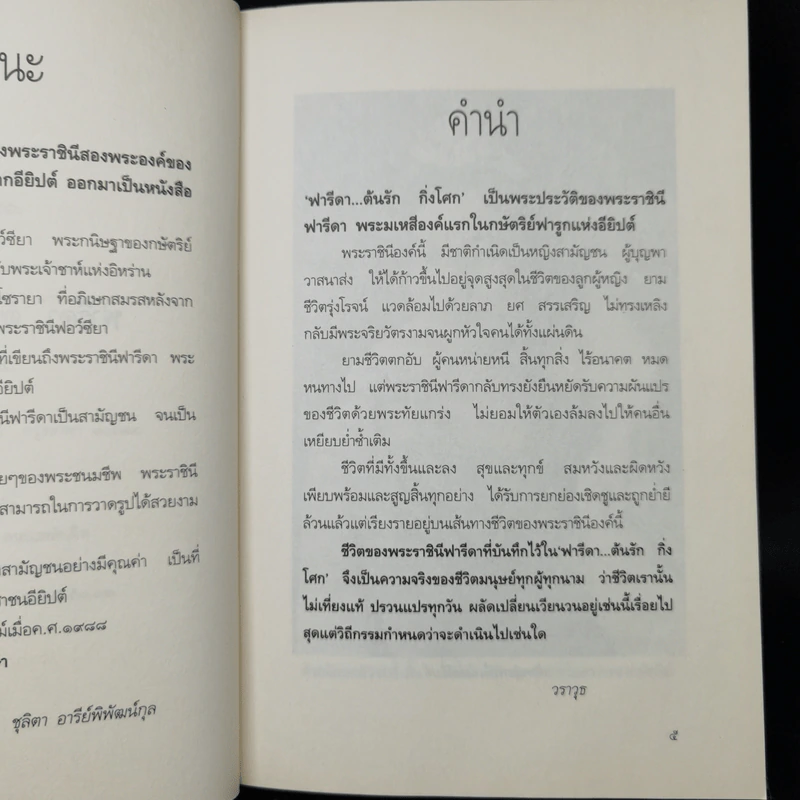 นะ
งพระราชินีสองพระองค์ของ
กอียิปต์ ออกมาเป็นหนังสือ
ว์ซียา พระกนิษฐาของกษัตริย์
ับพระเจ้าชาห์แห่งอิหร่าน
โซรายา ที่อภิเษกสมรสหลังจาก
พระราชินีฟอว์ซียา
ที่เขียนถึงพระราชินีฟารีดา พระ
อียิปต์
นีฟารีดาเป็นสามัญชน จนเป็น
ยๆของพระชนมชีพ พระราชินี
สามารถในการวาดรูปได้สวยงาม
สามัญชนอย่างมีคุณค่า เป็นที่
าชนอียิปต์
ม์เมื่อค.ศ.๑๙๘๘
ชุลิตา อารีย์พิพัฒน์กุล
คำนำ
'ฟารีดา...ต้นรัก กิ่งโศก' เป็นพระประวัติของพระราชินี
ฟารีดา พระมเหสีองค์แรกในกษัตริย์ฟารูกแห่งอียิปต์
พระราชินีองค์นี้ มีชาติกำเนิดเป็นหญิงสามัญชน ผู้บุญพา
วาสนาส่ง ให้ได้ก้าวขึ้นไปอยู่จุดสูงสุดในชีวิตของลูกผู้หญิง ยาม
ชีวิตรุ่งโรจน์ แวดล้อมไปด้วยลาภ ยศ สรรเสริญ ไม่ทรงเหลิง
กลับมีพระจริยวัตรงามจนผูกหัวใจคนได้ทั้งแผ่นดิน
ยามชีวิตตกอับ ผู้คนหน่ายหนี สิ้นทุกสิ่ง ไร้อนาคต หมด
หนทางไป แต่พระราชินีฟารีดากลับทรงยังยืนหยัดรับความผันแปร
ของชีวิตด้วยพระทัยแกร่ง ไม่ยอมให้ตัวเองล้มลงไปให้คนอื่น
เหยียบย่ำซ้ำเติม
ชีวิตที่มีทั้งขึ้นและลง สุขและทุกข์ สมหวังและผิดหวัง
เพียบพร้อมและสูญสิ้นทุกอย่าง ได้รับการยกย่องเชิดชูและถูกย่ำยี
ล้วนแล้วแต่เรียงรายอยู่บนเส้นทางชีวิตของพระราชินีองค์นี้
ชีวิตของพระราชินีฟารีดาที่บันทึกไว้ใน'ฟารีดา...ต้นรัก กิ่ง
โศก' จึงเป็นความจริงของชีวิตมนุษย์ทุกผู้ทุกนาม ว่าชีวิตเรานั้น
ไม่เที่ยงแท้ ปรวนแปรทุกวัน ผลัดเปลี่ยนเวียนวนอยู่เช่นนี้เรื่อยไป
สุดแต่วิถีกรรมกำหนดว่าจะดำเนินไปเช่นใด
วราวุธ
๕